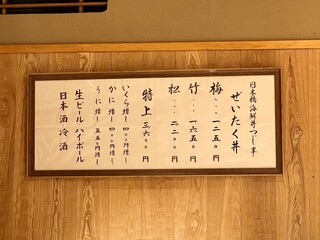 日本橋海鮮丼つじ半
ぜいたく丼
梅…一二五〇円
竹…一六五〇円
松…二二〇〇円
特上三六〇〇円
いくら増し四〇〇円増し
かに増し四〇〇円増し
うに増し五五〇円増し
生ビール ハイボール
日本酒 冷酒